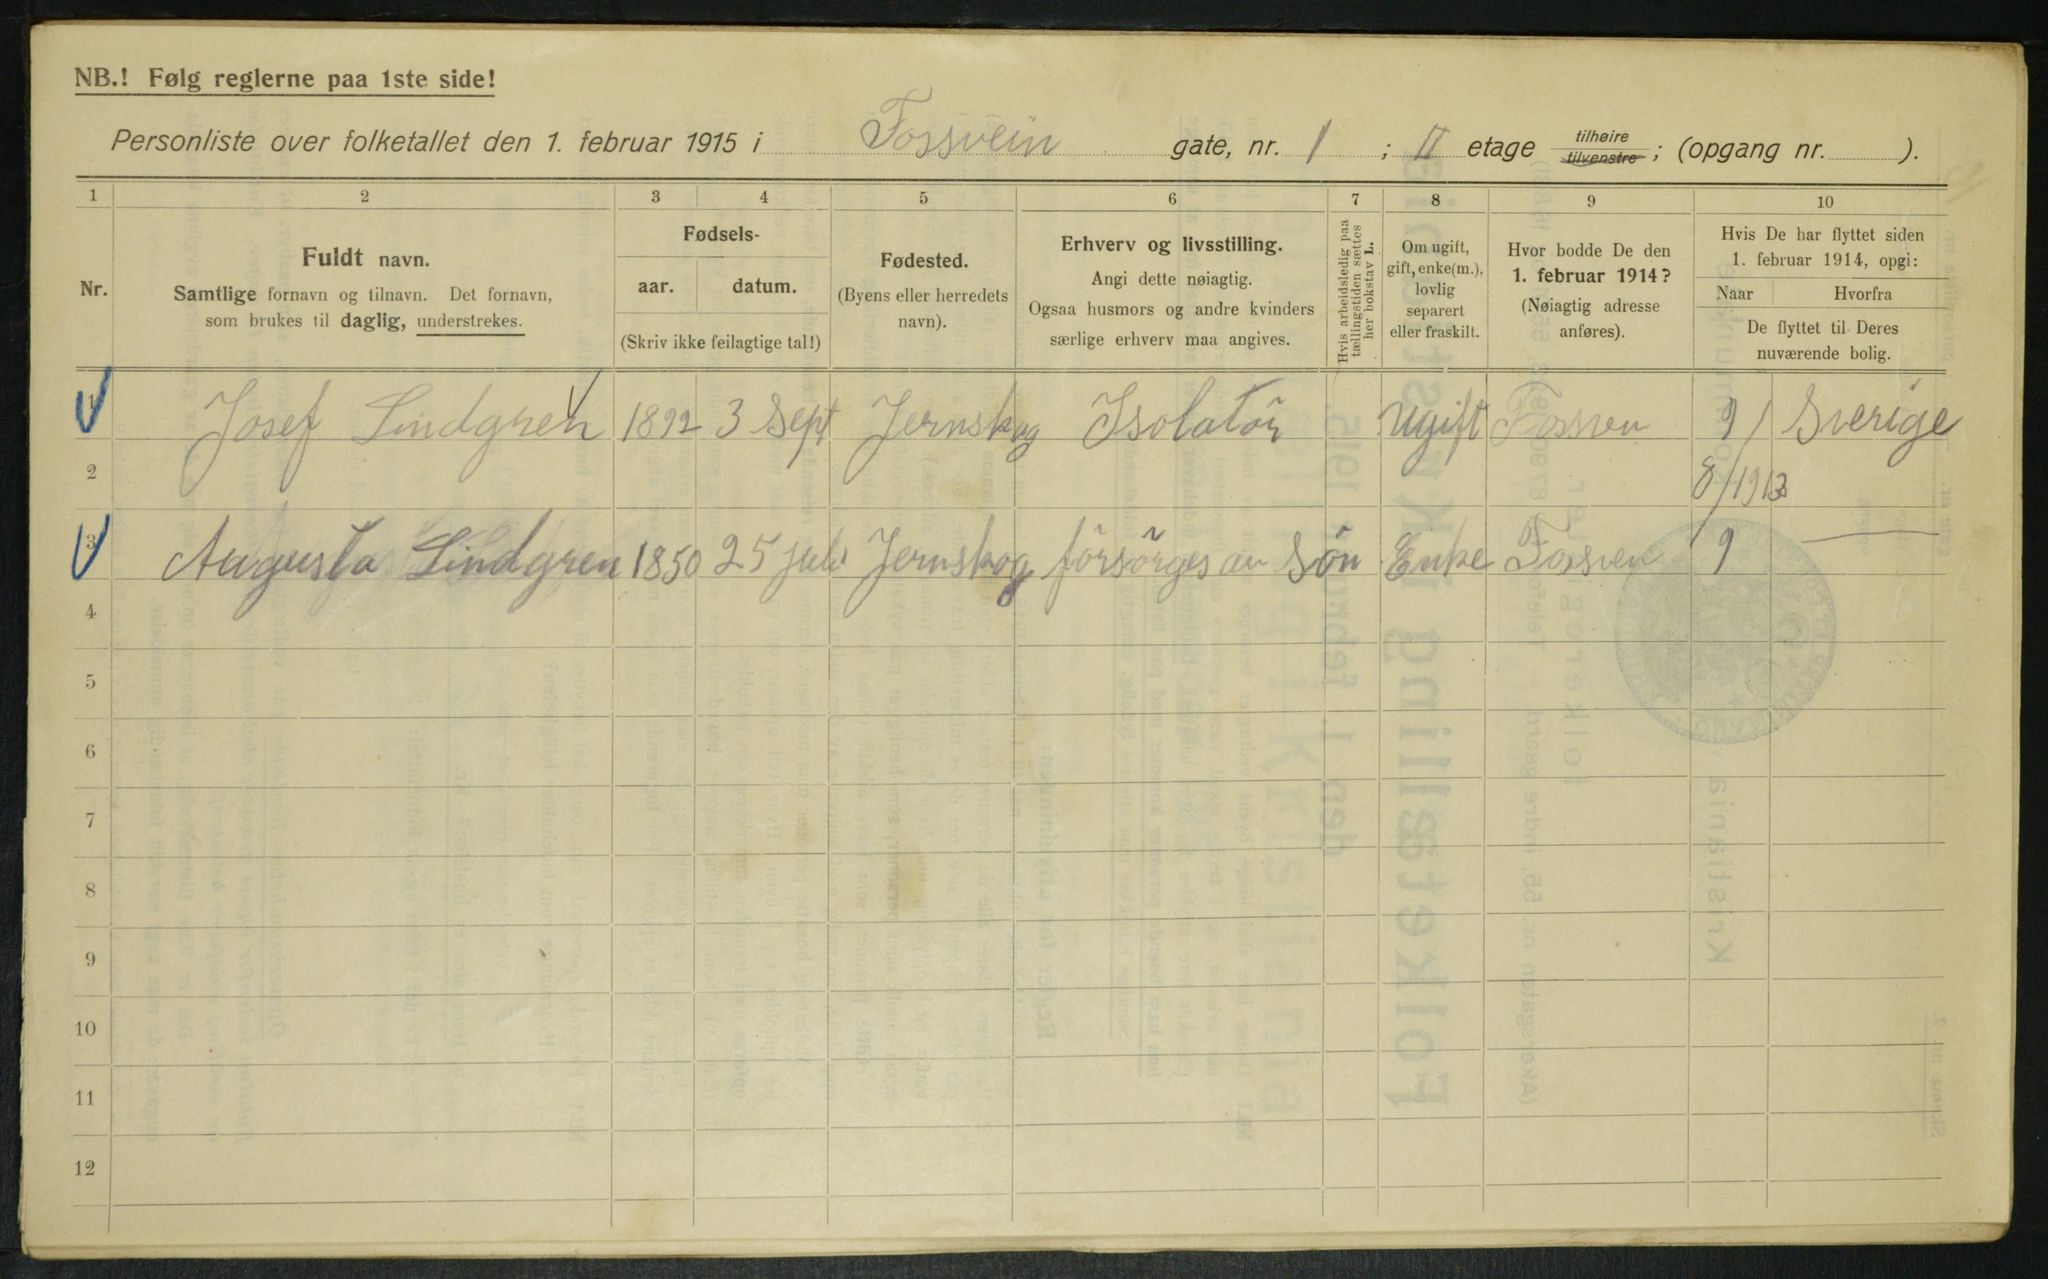 NB.! Følg reglerne paa 1ste side!
Personliste over folketallet den 1. februar 1915 i Fossvein gate, nr. 1 ; II etage tilhøire tilvenstre ; (opgang nr. ).
1 2 3 4 5 6 7 8 9 10
Nr.
Fuldt navn.
Samtlige fornavn og tilnavn. Det fornavn,
som brukes til daglig, understrekes.
Fødsels-
aar. datum.
(Skriv ikke feilagtige tal!)
Fødested.
(Byens eller herredets
navn).
Erhverv og livsstilling.
Angi dette nøiagtig.
Ogsaa husmors og andre kvinders
særlige erhverv maa angives.
Hvis arbeidsledig paa
tællingstiden sættes
her bokstav L.
Om ugift,
gift, enke(m.),
lovlig
separert
eller fraskilt.
Hvor bodde De den
1. februar 1914?
(Nøiagtig adresse
anføres).
Hvis De har flyttet siden
1. februar 1914, opgi:
Naar Hvorfra
De flyttet til Deres
nuværende bolig.
1 Josef Lindgren 1892 3 Sept Jernskog Isolatör Ugift Fossven 9/ Sverige
2 8/1913
3 Augusta Lindgren 1850 25 juli Jernskog försörges av Sön Enke Fossven 9 —
4
5
6
7
8
9
10
11
12